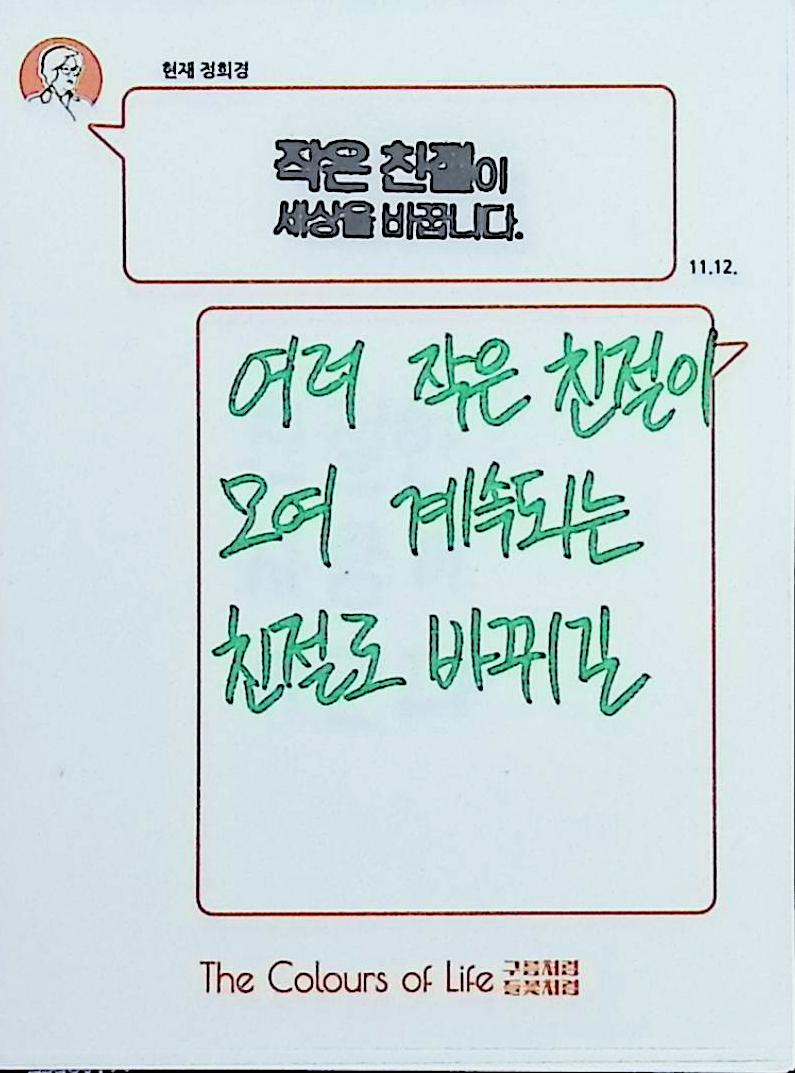 현재 정희경
작은 친절이
세상을 바꿉니다.
11.12.
여러 작은 친절이
모여 계속되는
친절로 바뀌길
The Colours of Life 구름처럼
들꽃처럼